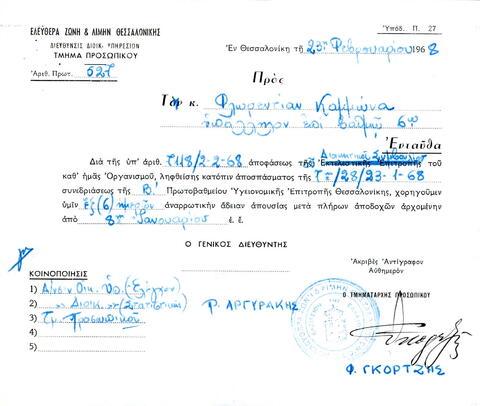 ΕΛΕΥΘΕΡΑ ΖΩΝΗ & ΛΙΜΗΝ ΘΕΣΣΑΛΟΝΙΚΗΣ
Ὑπόδ. Π. 27
ΔΙΕΥΘΥΝΣΙΣ ΔΙΟΙΚ. ΥΠΗΡΕΣΙΩΝ
ΤΜΗΜΑ ΠΡΟΣΩΠΙΚΟΥ
Ἐν Θεσσαλονίκῃ τῇ 23ῃ Φεβρουαρίου 1968
Ἀριθ. Πρωτ. 527
Πρὸς
Τὴν κ. Φλωρεντίαν
ὑπάλληλον ἐπὶ βαθμῷ 6ῳ
Ἐνταῦθα
Διὰ τῆς ὑπ' ἀριθ. 718/2-2-68 ἀποφάσεως τῆς Ἐκτελεστικῆς Ἐπιτροπῆς τοῦ
καθ' ἡμᾶς Ὀργανισμοῦ, ληφθείσης κατόπιν ἀποσπάσματος τῆς 28/23-1-68
συνεδριάσεως τῆς Β' Πρωτοβαθμίου Ὑγειονομικῆς Ἐπιτροπῆς Θεσσαλονίκης, χορηγοῦμεν
ὑμῖν ἕξ (6) ἡμερῶν ἀναρρωτικὴν ἄδειαν ἀπουσίας μετὰ πλήρων ἀποδοχῶν ἀρχομένην
ἀπὸ 8ης Ἰανουαρίου ἐ. ἔ.
Ο ΓΕΝΙΚΟΣ ΔΙΕΥΘΥΝΤΗΣ
Ἀκριβὲς Ἀντίγραφον
Αὐθημερόν
ΚΟΙΝΟΠΟΙΗΣΙΣ
Ο ΤΜΗΜΑΤΑΡΧΗΣ ΠΡΟΣΩΠΙΚΟΥ
1) Δ/νσιν Οἰκ. Ὑπ. (Ἐλέγχου)
2) » Διοικ. » (Στατιστικῆς)
Φ. ΑΡΓΥΡΑΚΗΣ
3) Τμ. Προσωπικοῦ
4)
5)
Φ. ΓΚΟΡΤΖΗΣ